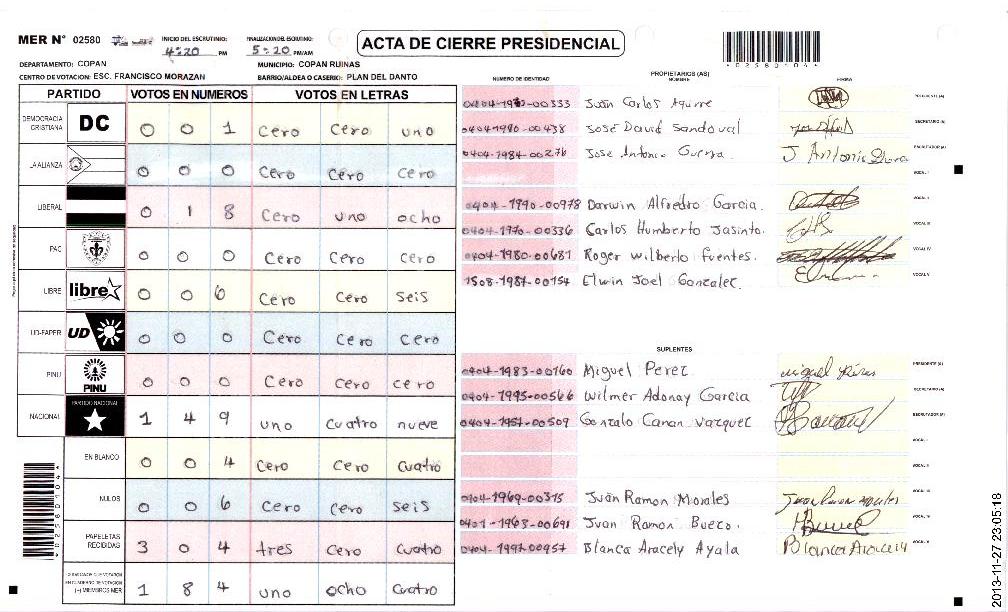 MER N° 02580
INICIO DEL ESCRUTINIO: 4:20 PM
FINALIZACION DEL ESCRUTINIO: 5:20 PM/AM
ACTA DE CIERRE PRESIDENCIAL
*02580104*
DEPARTAMENTO: COPAN
MUNICIPIO: COPAN RUINAS
CENTRO DE VOTACION: ESC. FRANCISCO MORAZAN
BARRIO/ALDEA O CASERIO: PLAN DEL DANTO
PARTIDO VOTOS EN NUMEROS VOTOS EN LETRAS
DEMOCRACIA CRISTIANA DC 0 0 1 Cero Cero uno
LA ALIANZA 0 0 0 Cero Cero Cero
LIBERAL 0 1 8 Cero uno ocho
PAC 0 0 0 Cero Cero cero
LIBRE libre 0 0 6 Cero Cero seis
UD-FAPER UD 0 0 0 Cero Cero cero
PINU PINU 0 0 0 Cero Cero cero
NACIONAL PARTIDO NACIONAL 1 4 9 uno cuatro nueve
EN BLANCO 0 0 4 Cero Cero Cuatro
NULOS 0 0 6 Cero Cero seis
PAPELETAS RECIBIDAS 3 0 4 tres Cero Cuatro
(+) MIEMBROS MER 1 8 4 uno ocho Cuatro
*02580104*
PROPIETARIOS (AS)
NUMERO DE IDENTIDAD NOMBRE FIRMA
Juan Carlos Aguirre PRESIDENTE (A)
0404-1990-00438 José David Sandoval SECRETARIO (A)
0404-1984-00276 Jose Antonio Guerra J Antonio Guerra ESCRUTADOR (A)
VOCAL I
0404-1990-00978 Darwin Alfredo Garcia. VOCAL II
0404-1970-00336 Carlos Humberto Jasinto. VOCAL III
0404-1980-00681 Roger Wilberto Fuentes. VOCAL IV
1508-1987-00154 Elwin Joel Gonzalez. VOCAL V
SUPLENTES
0404-1983-00160 Miguel Perez miguel Pérez PRESIDENTE (A)
0404-1995-00566 Wilmer Adonay Garcia SECRETARIO (A)
0404-1957-00509 Gonzalo Canan Vazquez ESCRUTADOR (A)
VOCAL I
VOCAL II
0404-1969-00315 Juan Ramon Morales Juan Ramon Morales VOCAL III
0401-1963-00691 Juan Ramon Bueso. VOCAL IV
0404-1997-00957 Blanca Aracely Ayala Blanca Aracely VOCAL V
2013-11-27 23:05:18